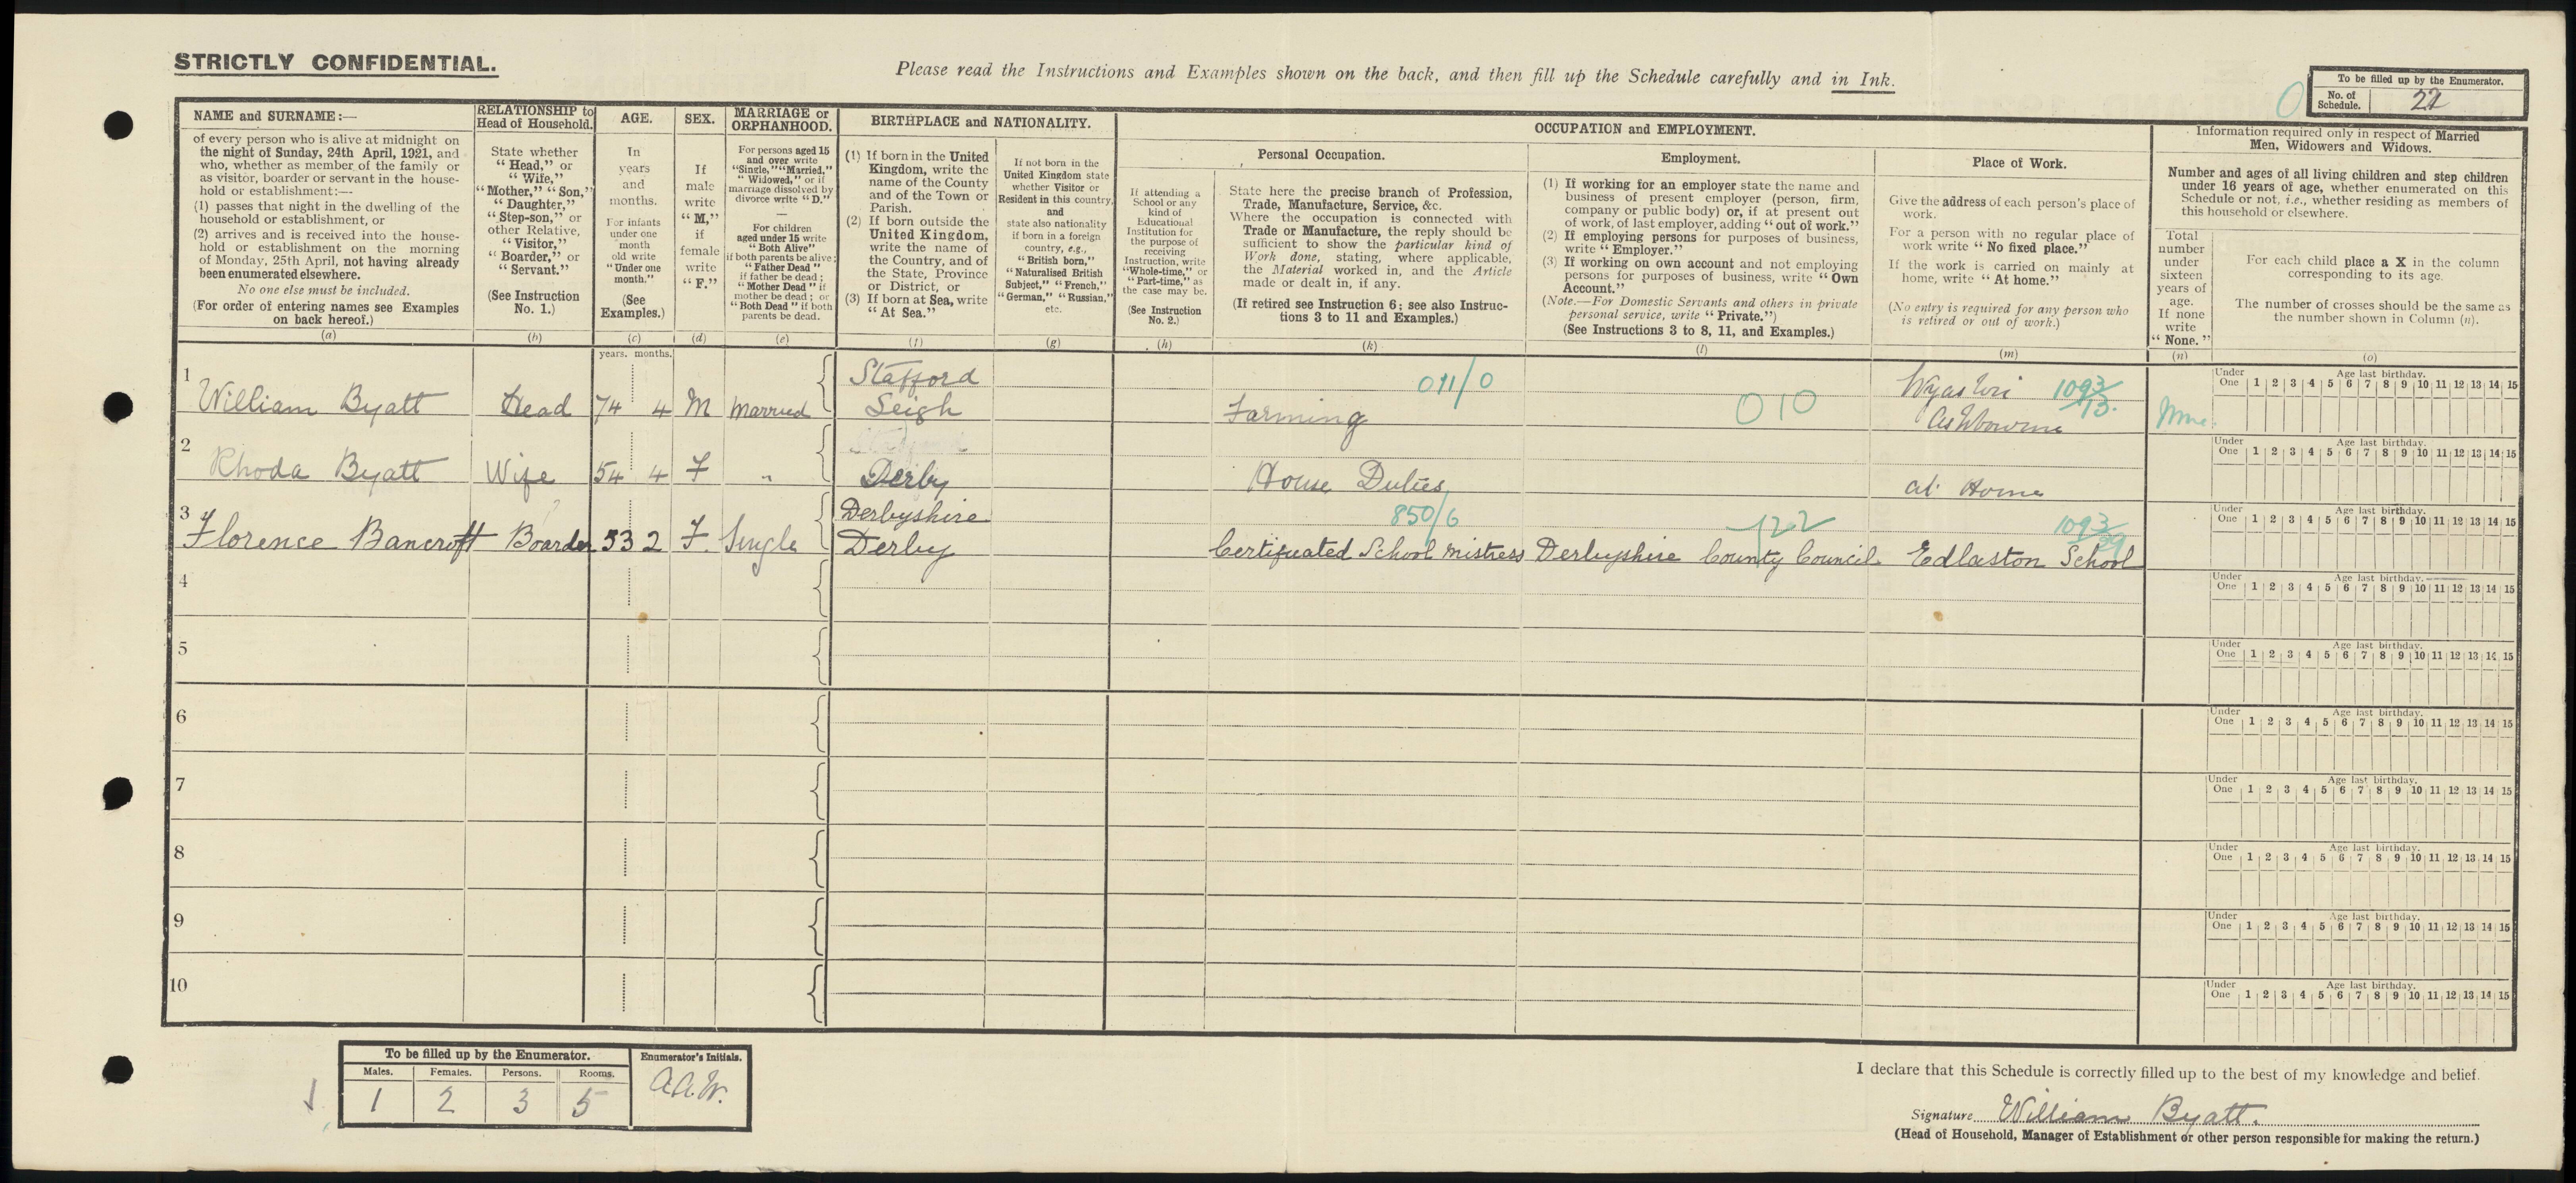 STRICTLY CONFIDENTIAL.
Please read the Instructions and Examples shown on the back, and then fill up the Schedule carefully and in Ink.
To be filled up by the Enumerator.
No. of Schedule. 22
NAME and SURNAME:—
of every person who is alive at midnight on
the night of Sunday, 24th April, 1921, and
who, whether as member of the family or
as visitor, boarder or servant in the house-
hold or establishment:—
(1) passes that night in the dwelling of the
household or establishment, or
(2) arrives and is received into the house-
hold or establishment on the morning
of Monday, 25th April, not having already
been enumerated elsewhere.
No one else must be included.
(For order of entering names see Examples
on back hereof.)
(a)
RELATIONSHIP to
Head of Household.
State whether
"Head," or
"Wife,"
"Mother," "Son,"
"Daughter,"
"Step-son," or
other Relative,
"Visitor,"
"Boarder," or
"Servant."
(See Instruction
No. 1.)
(b)
AGE.
In
years
and
months.
For infants
under one
month
old write
"Under one
month."
(See
Examples.)
(c)
SEX.
If
male
write
"M."
if
female
write
"F."
(d)
MARRIAGE or
ORPHANHOOD.
For persons aged 15
and over write
"Single," "Married,"
"Widowed," or if
marriage dissolved by
divorce write "D."
—
For children
aged under 15 write
"Both Alive"
if both parents be alive;
"Father Dead"
if father be dead;
"Mother Dead" if
mother be dead; or
"Both Dead" if both
parents be dead.
(e)
BIRTHPLACE and NATIONALITY.
(1) If born in the United
Kingdom, write the
name of the County
and of the Town or
Parish.
(2) If born outside the
United Kingdom,
write the name of
the Country, and of
the State, Province
or District, or
(3) If born at Sea, write
"At Sea."
(f)
If not born in the
United Kingdom state
whether Visitor or
Resident in this country,
and
state also nationality
if born in a foreign
country, e.g.,
"British born,"
"Naturalised British
Subject," "French,"
"German," "Russian,"
etc.
(g)
OCCUPATION and EMPLOYMENT.
Personal Occupation.
If attending a
School or any
kind of
Educational
Institution for
the purpose of
receiving
Instruction, write
"Whole-time," or
"Part-time," as
the case may be.
(See Instruction
No. 2.)
(h)
State here the precise branch of Profession,
Trade, Manufacture, Service, &c.
Where the occupation is connected with
Trade or Manufacture, the reply should be
sufficient to show the particular kind of
Work done, stating, where applicable,
the Material worked in, and the Article
made or dealt in, if any.
(If retired see Instruction 6; see also Instruc-
tions 3 to 11 and Examples.)
(k)
Employment.
(1) If working for an employer state the name and
business of present employer (person, firm,
company or public body) or, if at present out
of work, of last employer, adding "out of work."
(2) If employing persons for purposes of business,
write "Employer."
(3) If working on own account and not employing
persons for purposes of business, write "Own
Account."
(Note.—For Domestic Servants and others in private
personal service, write "Private.")
(See Instructions 3 to 8, 11, and Examples.)
(l)
Place of Work.
Give the address of each person's place of
work.
For a person with no regular place of
work write "No fixed place."
If the work is carried on mainly at
home, write "At home."
(No entry is required for any person who
is retired or out of work.)
(m)
Information required only in respect of Married
Men, Widowers and Widows.
Number and ages of all living children and step children
under 16 years of age, whether enumerated on this
Schedule or not, i.e., whether residing as members of
this household or elsewhere.
Total
number
under
sixteen
years of
age.
If none
write
"None."
(n)
For each child place a X in the column
corresponding to its age.
The number of crosses should be the same as
the number shown in Column (n).
(o)
years. months.
1 William Byatt Head 74 4 M Married Stafford Leigh Farming 011/0 010 Ashbourne 1093/13. None
Under One Age last birthday. 1 2 3 4 5 6 7 8 9 10 11 12 13 14 15
2 Rhoda Byatt Wife 54 4 F " Derby House Duties at Home
Under One Age last birthday. 1 2 3 4 5 6 7 8 9 10 11 12 13 14 15
3 Florence Bancroft Boarder 53 2 F. Single Derbyshire Derby Certificated School Mistress 850/6 Derbyshire County Council 122 Edlaston School 1093/
Under One Age last birthday. 1 2 3 4 5 6 7 8 9 10 11 12 13 14 15
4
Under One Age last birthday. 1 2 3 4 5 6 7 8 9 10 11 12 13 14 15
5
Under One Age last birthday. 1 2 3 4 5 6 7 8 9 10 11 12 13 14 15
6
Under One Age last birthday. 1 2 3 4 5 6 7 8 9 10 11 12 13 14 15
7
Under One Age last birthday. 1 2 3 4 5 6 7 8 9 10 11 12 13 14 15
8
Under One Age last birthday. 1 2 3 4 5 6 7 8 9 10 11 12 13 14 15
9
Under One Age last birthday. 1 2 3 4 5 6 7 8 9 10 11 12 13 14 15
10
Under One Age last birthday. 1 2 3 4 5 6 7 8 9 10 11 12 13 14 15
To be filled up by the Enumerator.
Males. Females. Persons. Rooms.
1 2 3 5
Enumerator's Initials.
A.A.W.
I declare that this Schedule is correctly filled up to the best of my knowledge and belief.
Signature William Byatt.
(Head of Household, Manager of Establishment or other person responsible for making the return.)